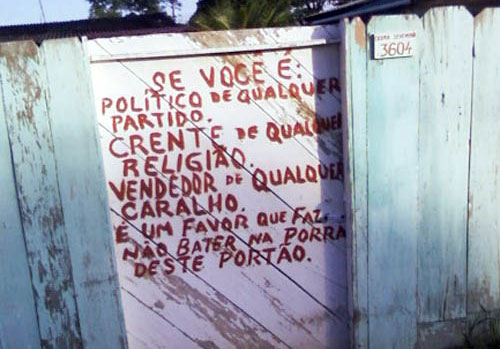 SE VOCÊ É:
POLÍTICO DE QUALQUER
PARTIDO.
CRENTE DE QUALQUER
RELIGIÃO.
VENDEDOR DE QUALQUER
CARALHO.
É UM FAVOR QUE FAZ.
NÃO BATER NA PORRA
DESTE PORTÃO.
3604